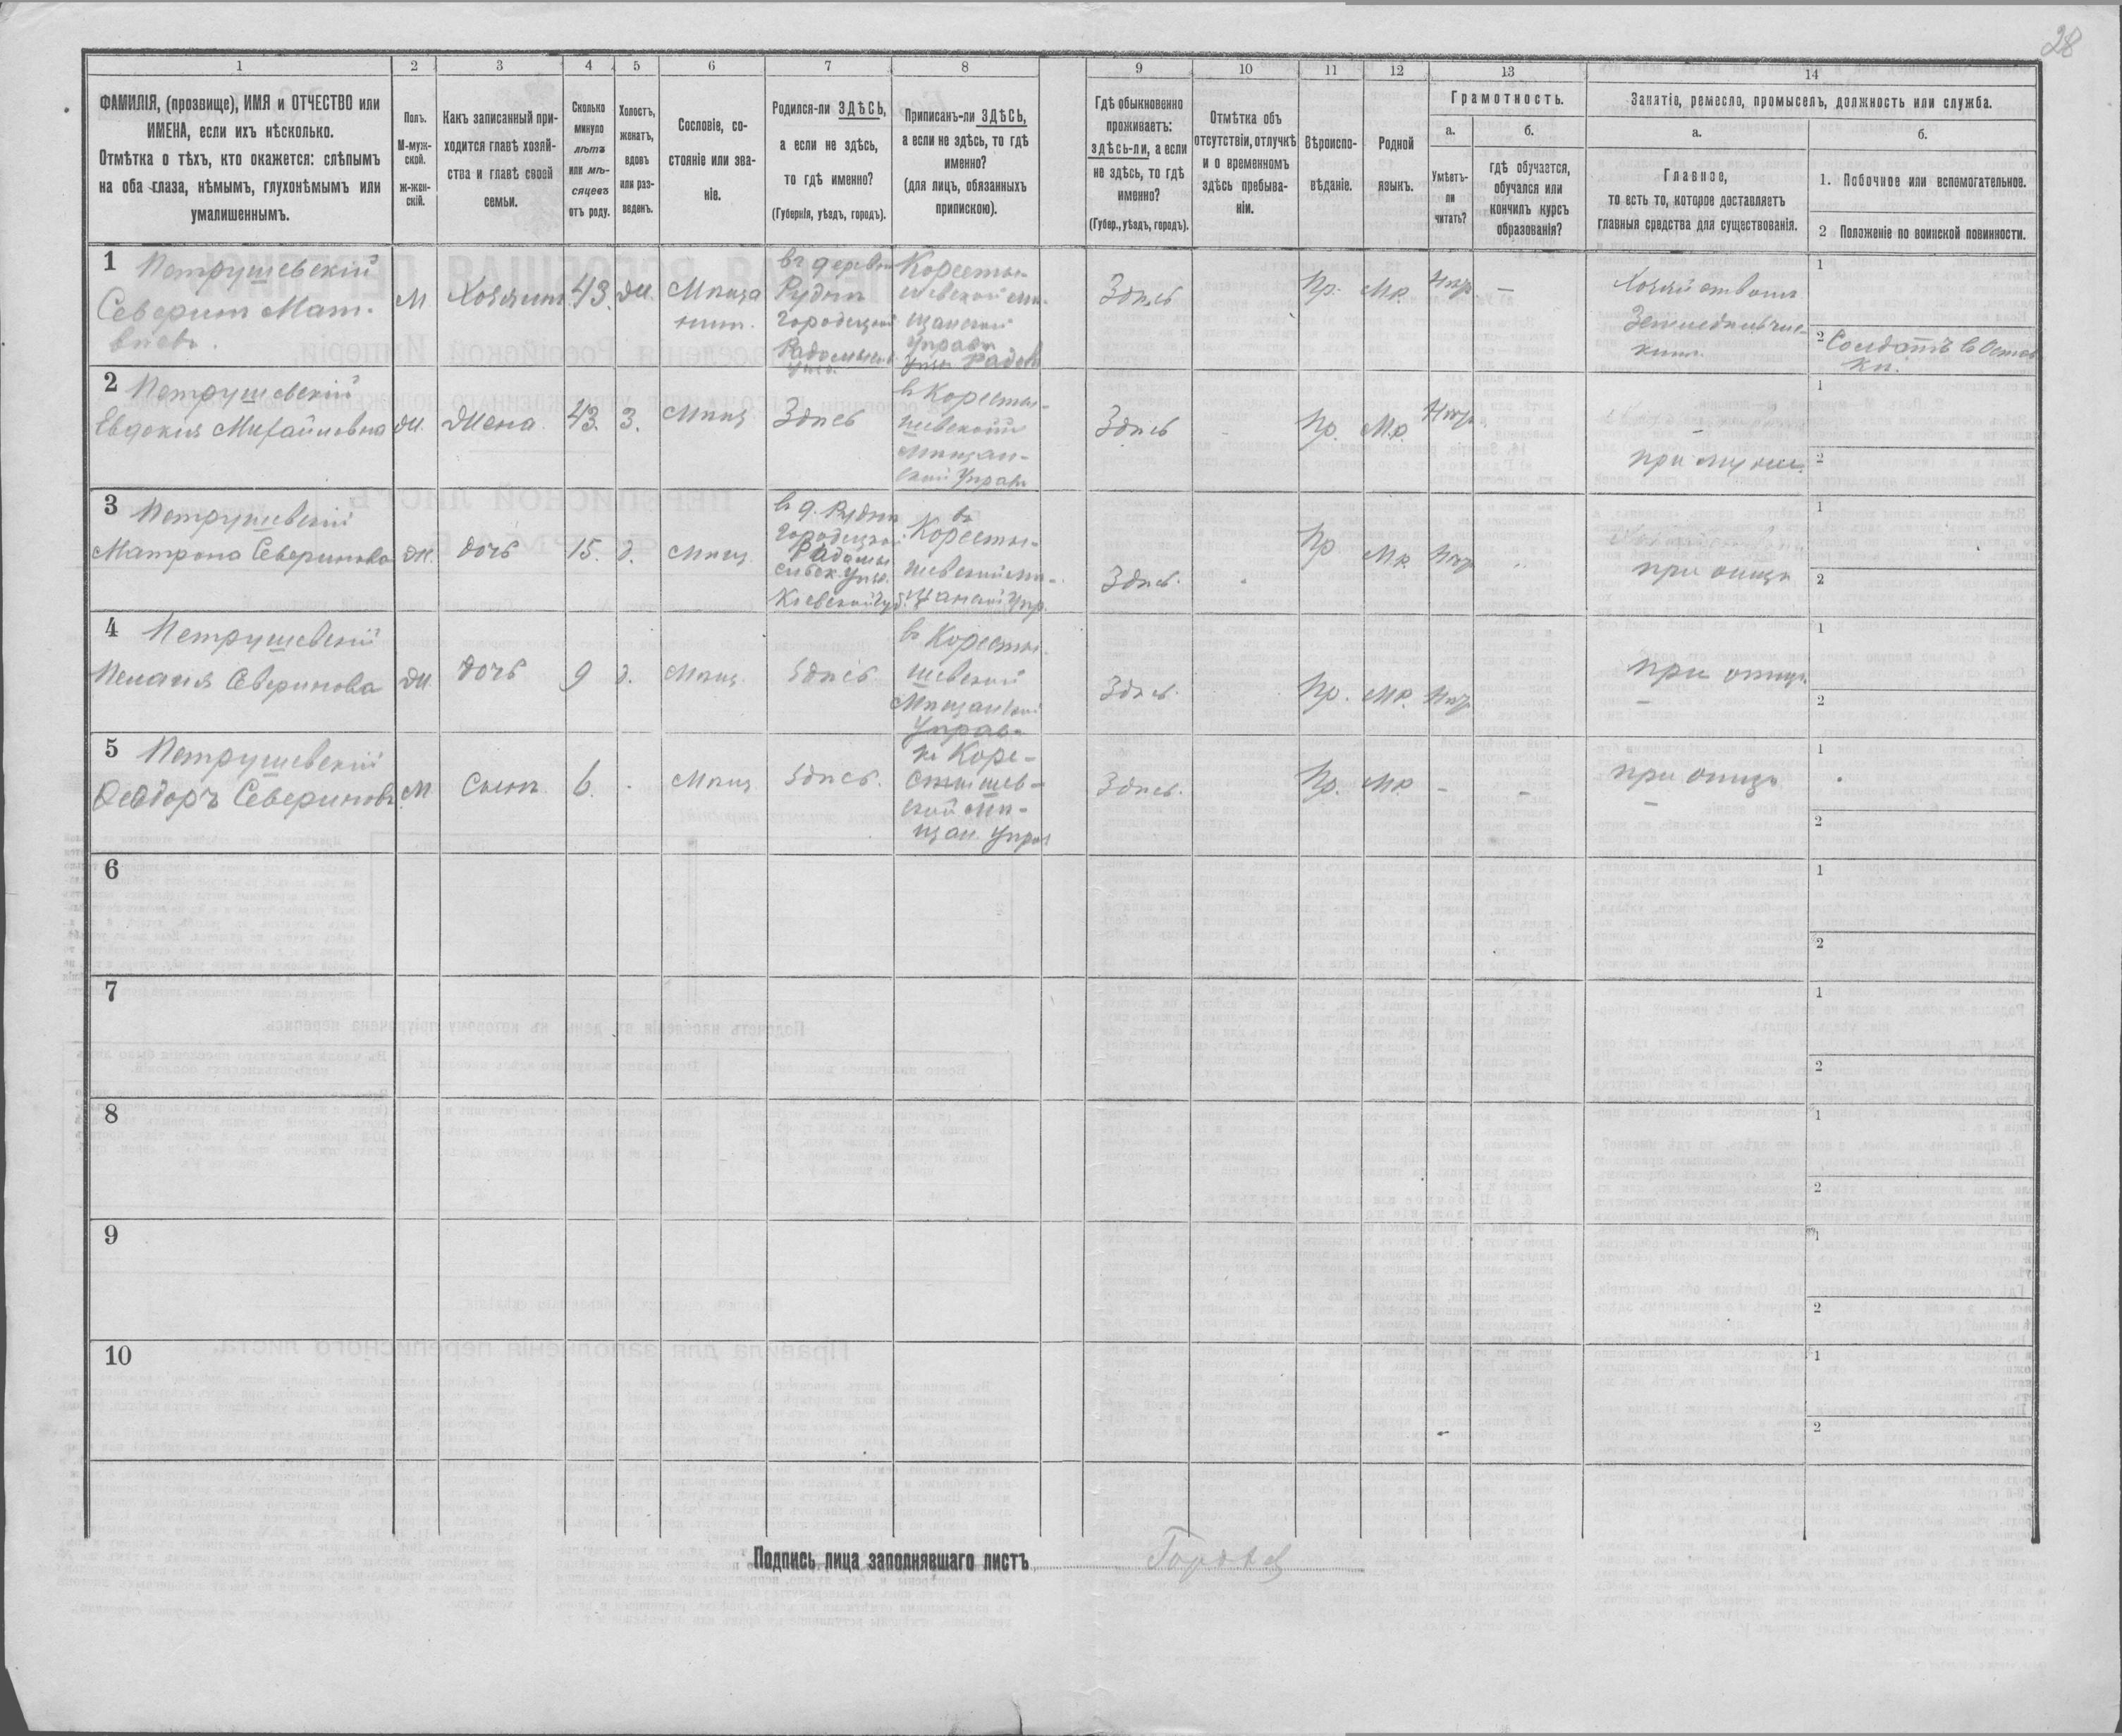 28
1 2 3 4 5 6 7 8 9 10 11 12 13 14
ФАМИЛІЯ, (прозвище), ИМЯ и ОТЧЕСТВО или
ИМЕНА, если ихъ нѣсколько.
Отмѣтка о тѣхъ, кто окажется: слѣпымъ
на оба глаза, нѣмымъ, глухонѣмымъ или
умалишеннымъ.
Полъ.
М-муж-
ской.
ж-жен-
скій.
Какъ записанный при-
ходится главѣ хозяй-
ства и главѣ своей
семьи.
Сколько
минуло
лѣтъ
или мѣ-
сяцевъ
отъ роду.
Холостъ,
женатъ,
вдовъ
или раз-
веденъ.
Сословіе, со-
стояніе или зва-
ніе.
Родился-ли ЗДѢСЬ,
а если не здѣсь,
то гдѣ именно?
(Губернія, уѣздъ, городъ).
Приписанъ-ли ЗДѢСЬ,
а если не здѣсь, то гдѣ
именно?
(для лицъ, обязанныхъ
припискою).
Гдѣ обыкновенно
проживаетъ:
здѣсь-ли, а если
не здѣсь, то гдѣ
именно?
(Губер., уѣздъ, городъ).
Отмѣтка объ
отсутствіи, отлучкѣ
и о временномъ
здѣсь пребыва-
ніи.
Вѣроиспо-
вѣданіе.
Родной
языкъ.
Грамотность.
а.
Умѣетъ-
ли
читать?
б.
гдѣ обучается,
обучался или
кончилъ курсъ
образованія?
Занятіе, ремесло, промыселъ, должность или служба.
а.
Главное,
то есть то, которое доставляетъ
главныя средства для существованія.
б.
1. Побочное или вспомогательное.
2 Положеніе по воинской повинности.
1 Петрушевскій
Северинъ Мат-
вѣевъ.
М. Хозяинъ 43. Ж. Мѣща
нинъ.
въ деревни
Рудни
Городецкой
Радомысл.
Уѣзд.
Коросты-
шевской Мѣ-
щанской
Управи
Здѣсь Пр. Мр. Нѣгр —
1
2 Солдатъ въ Отстав
ки.
2 Петрушевскій
Евдокия Михайловна Ж. Жена. 43. З. Мѣщ Здѣсь
в Коросты-
шевской
Мѣщан-
ской Управ
Здѣсь Пр. М.р. Нѣгр
при мужи.
1
2
3 Петрушевскій
Матрона Северинова Ж. дочь 15. д. Мѣщ
в д. Рудни
Городецкой
Радомы
сльск. Уѣзд.
Кіевской Губ.
в
Коросты-
шевской Мѣ-
щанской Упр.
Здѣсь. Пр Мр Нѣгр
при отцѣ
1
2
4 Петрушевскій
Пелагия Северинова Ж. дочь 9 д. Мѣщ. Здѣсь
в Коросты-
шевской
Мѣщанской
Управи
Здѣсь. Пр. Мр. Нѣгр
при отцѣ
1
2
5 Петрушевскій
Феодоръ Севериновъ. М Сынъ 6. - Мѣщ Здѣсь.
к Коро-
стышев-
ской Мѣ-
щан. Управ
Здѣсь. Пр. Мр - -
при отцѣ
1
2
6
1
2
7
1
2
8
1
2
9
1
2
10
1
2
Подпись лица заполнявшаго листъ